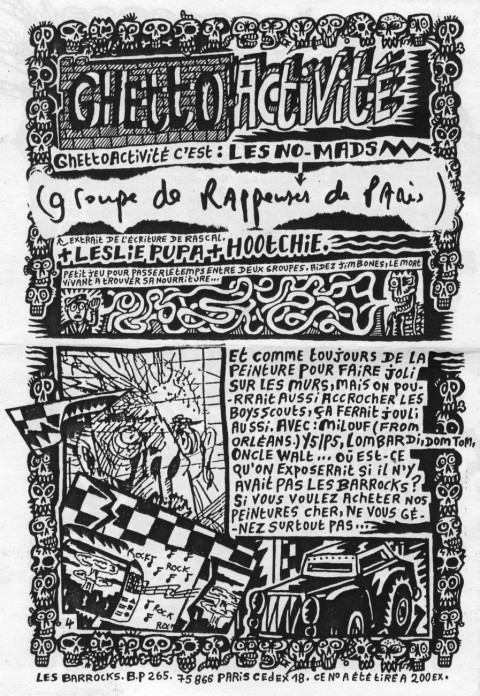 GHETTO ACTIVITÉ
GHETTOACTIVITÉ C'EST : LES NO-MADS
(groupe de Rappeuses de PARis)
EXTRAIT DE L'ÉCRITURE DE RASCAL.
+LESLIE PUPA+HOOTCHIE.
PETIT JEU POUR PASSER LE TEMPS ENTRE DEUX GROUPES. AIDEZ JIM BONES, LE MORT
VIVANT A TROUVER SA NOURRITURE...
ET COMME TOUJOURS DE LA
PEINTURE POUR FAIRE JOLI
SUR LES MURS, MAIS ON POU-
RRAIT AUSSI ACCROCHER LES
BOYS SCOUTS, ÇA FERAIT JOULI
AUSSI. AVEC : MILOUF (FROM
ORLÉANS.) Y5/P5, LOMBARDI, DOM TOM,
ONCLE WALL... OÙ EST-CE
QU'ON EXPOSERAIT SI IL N'Y
AVAIT PAS LES BARROCKS?
SI VOUS VOULEZ ACHETER NOS
PEINTURES CHER, NE VOUS GÉ-
NEZ SURTOUT PAS...
ROCK
ROCK
ROCK
ROCK
4
LES BARROCKS. B.P 265. 75866 PARIS CEDEX 18. CE N° A ÉTÉ TIRÉ A 200 EX.